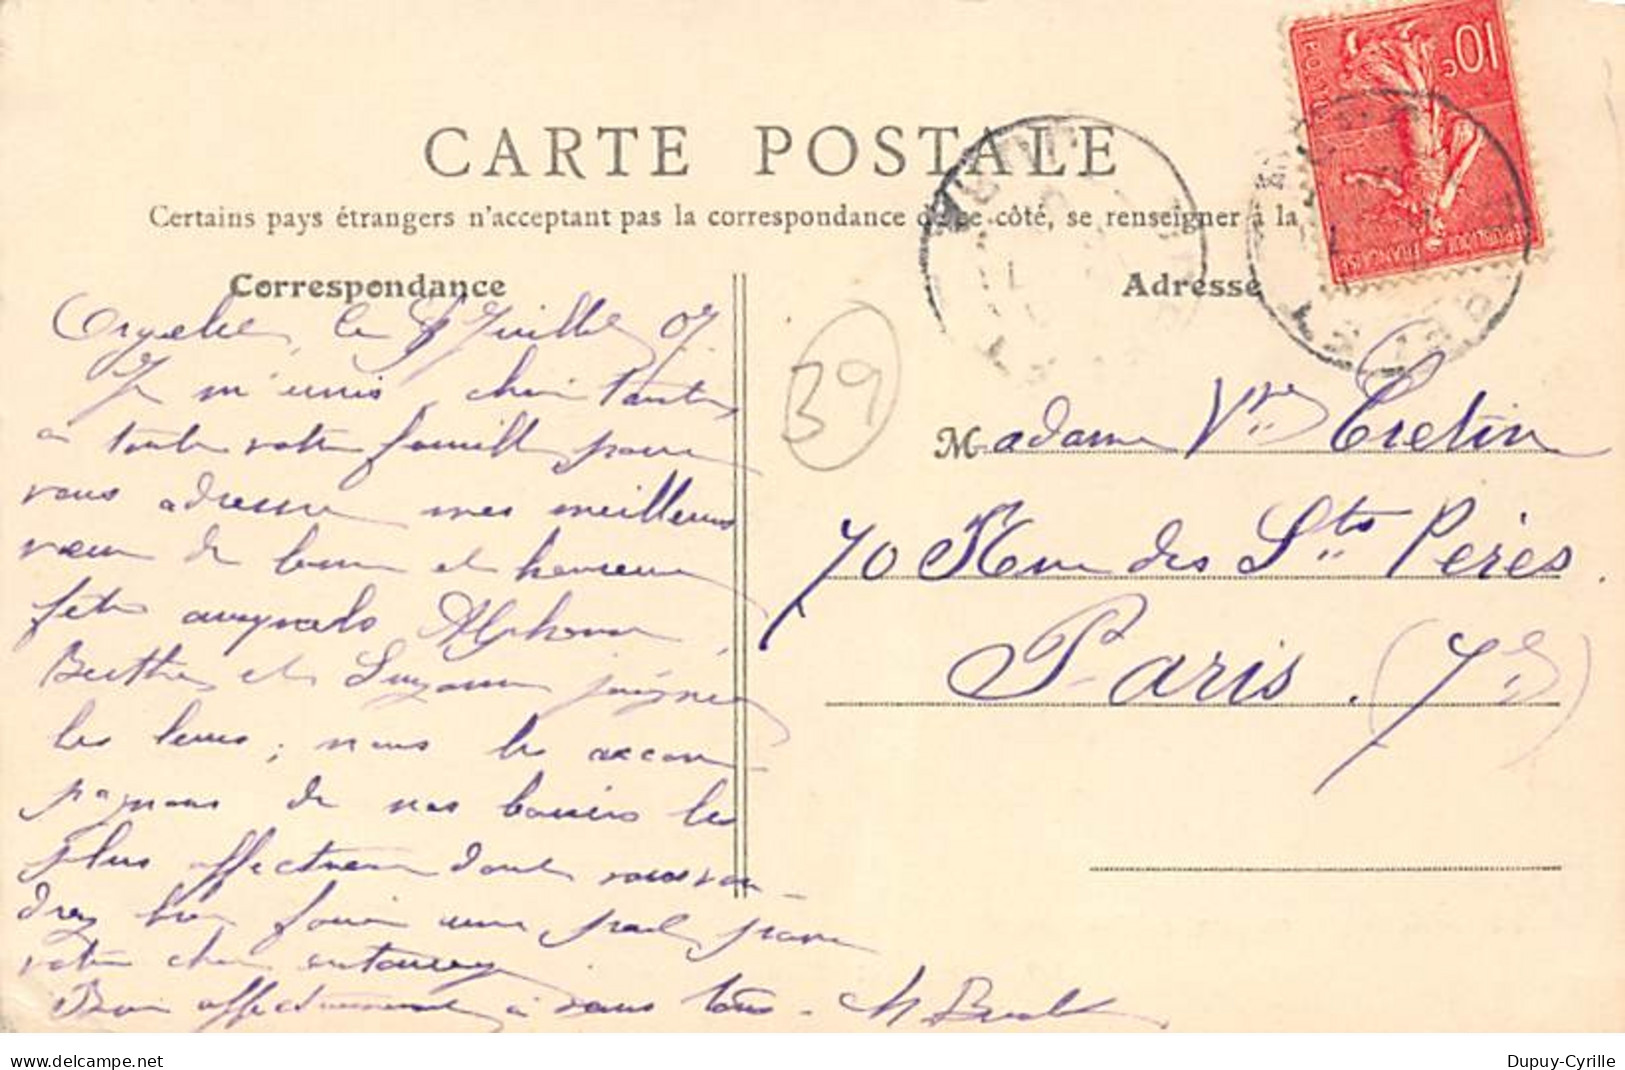 CARTE POSTALE
Certains pays étrangers n'acceptant pas la correspondance de ce côté, se renseigner à la
Correspondance
le 8 Juillet 07.
Je m'unis, chère Tante,
à toute votre famille pour
vous adresser mes meilleurs
vœux de bonne et heureuse
fête auxquels Alphonse,
Berthe et Suzanne joignent
les leurs; nous les accom-
pagnons de nos baisers les
plus affectueux dont vous vou-
drez bien faire une part pour
votre cher entourage
Bien affectueusement à vous tous.
39
Adresse
Madame Vve Cretin
70 Rue des Sts Pères.
Paris. (7e)
10c
POSTES
RÉPUBLIQUE
FRANÇAISE
www.delcampe.net
Dupuy-Cyrille